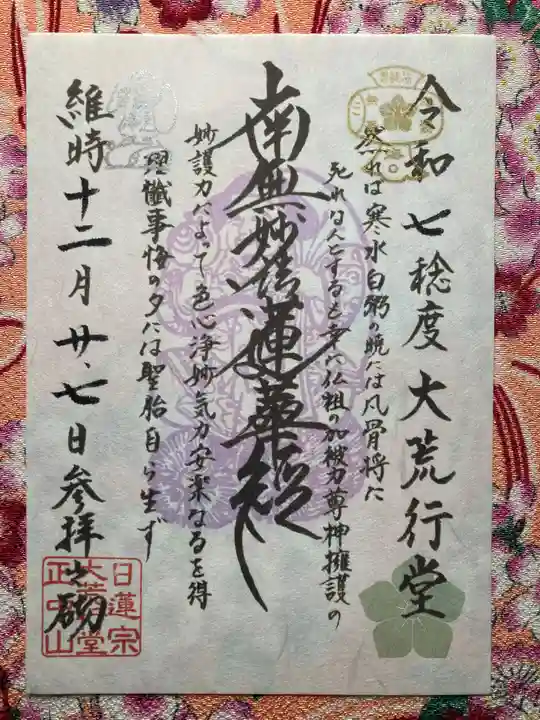 令和七稔度大荒行堂
然れは寒水白粥の暁には凡骨将に
死れはんとするも幸に仏祖の加被力尊神擁護の
南無妙法蓮華経
妙護力によって色心浄妙気力安楽なるを得
理懺事悔の夕には聖胎自ら生ず
維時十二月廿、七日参拝之砌
日蓮宗
大荒行堂
正中山